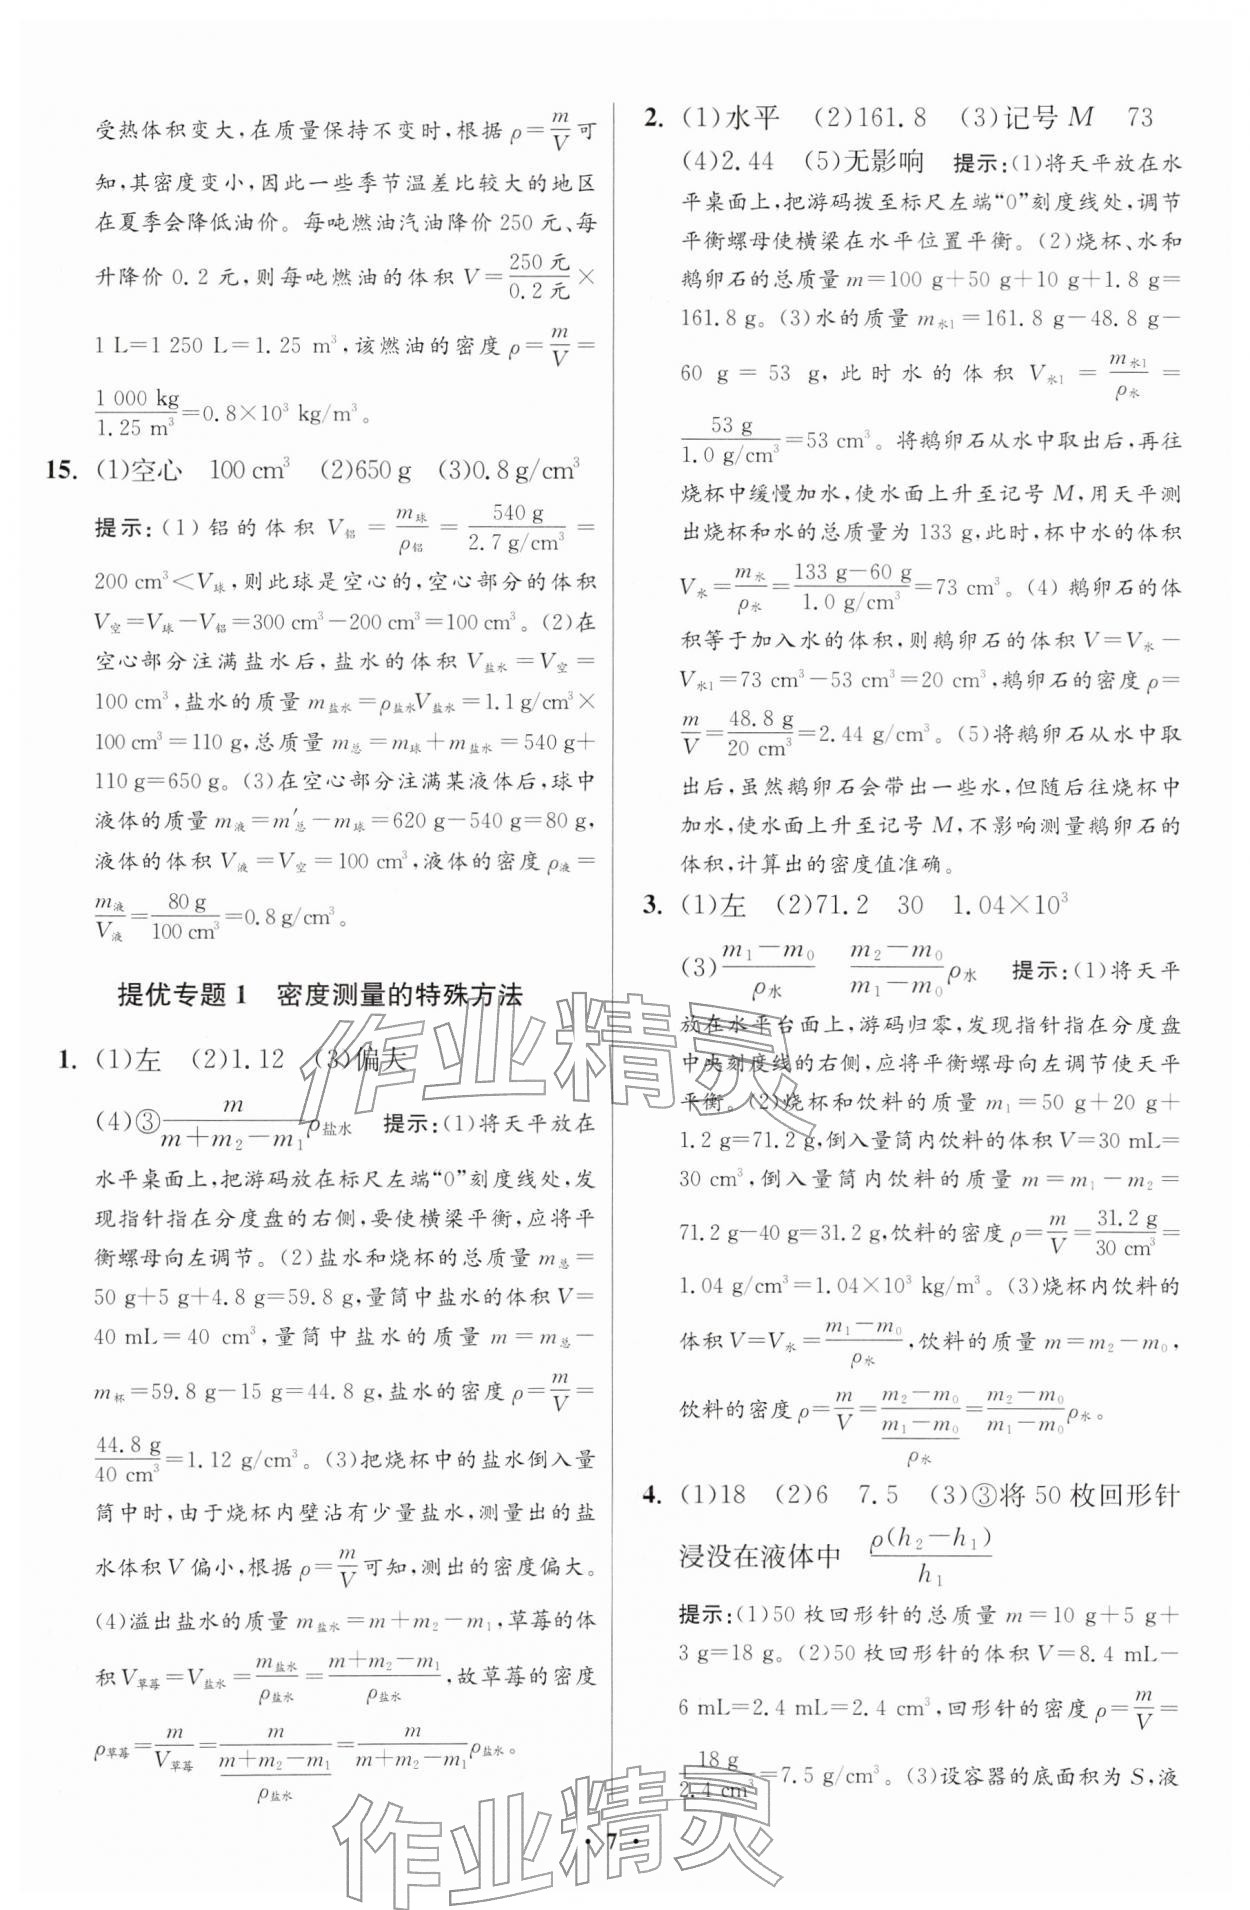 受热体积变大,在质量保持不变时,根据 ρ=m/V 可
知,其密度变小,因此一些季节温差比较大的地区
在夏季会降低油价。每吨燃油汽油降价 250 元、每
升降价 0.2 元,则每吨燃油的体积 V=250 元/0.2 元×
1 L=1 250 L=1.25 m³,该燃油的密度 ρ=m/V=
1 000 kg/1.25 m³=0.8×10³ kg/m³。
15. (1)空心 100 cm³ (2)650 g (3)0.8 g/cm³
提示:(1)铝的体积 V铝=m球/ρ铝=540 g/2.7 g/cm³=
200 cm³<V球,则此球是空心的,空心部分的体积
V空=V球-V铝=300 cm³-200 cm³=100 cm³。(2)在
空心部分注满盐水后,盐水的体积 V盐水=V空=
100 cm³,盐水的质量 m盐水=ρ盐水V盐水=1.1 g/cm³×
100 cm³=110 g,总质量 m总=m球+m盐水=540 g+
110 g=650 g。(3)在空心部分注满某液体后,球中
液体的质量 m液=m′总-m球=620 g-540 g=80 g,
液体的体积 V液=V空=100 cm³,液体的密度 ρ液=
m液/V液=80 g/100 cm³=0.8 g/cm³。
提优专题 1 密度测量的特殊方法
1. (1)左 (2)1.12 (3)偏大
(4)③ m/(m+m₂-m₁)ρ盐水 提示:(1)将天平放在
水平桌面上,把游码放在标尺左端“0”刻度线处,发
现指针指在分度盘的右侧,要使横梁平衡,应将平
衡螺母向左调节。(2)盐水和烧杯的总质量 m总=
50 g+5 g+4.8 g=59.8 g,量筒中盐水的体积 V=
40 mL=40 cm³,量筒中盐水的质量 m=m总-
m杯=59.8 g-15 g=44.8 g,盐水的密度 ρ=m/V=
44.8 g/40 cm³=1.12 g/cm³。(3)把烧杯中的盐水倒入量
筒中时,由于烧杯内壁沾有少量盐水,测量出的盐
水体积 V 偏小,根据 ρ=m/V 可知,测出的密度偏大。
(4)溢出盐水的质量 m盐水=m+m₂-m₁,草莓的体
积 V草莓=V盐水=m盐水/ρ盐水=(m+m₂-m₁)/ρ盐水,故草莓的密度
ρ草莓=m/V草莓=m/((m+m₂-m₁)/ρ盐水)=m/(m+m₂-m₁)ρ盐水。
2. (1)水平 (2)161.8 (3)记号 M 73
(4)2.44 (5)无影响 提示:(1)将天平放在水
平桌面上,把游码拨至标尺左端“0”刻度线处,调节
平衡螺母使横梁在水平位置平衡。(2)烧杯、水和
鹅卵石的总质量 m=100 g+50 g+10 g+1.8 g=
161.8 g。(3)水的质量 m水1=161.8 g-48.8 g-
60 g=53 g,此时水的体积 V水1=m水1/ρ水=
53 g/1.0 g/cm³=53 cm³。将鹅卵石从水中取出后,再往
烧杯中缓慢加水,使水面上升至记号 M,用天平测
出烧杯和水的总质量为 133 g,此时,杯中水的体积
V水=m水/ρ水=(133 g-60 g)/1.0 g/cm³=73 cm³。(4)鹅卵石的体
积等于加入水的体积,则鹅卵石的体积 V=V水-
V水1=73 cm³-53 cm³=20 cm³,鹅卵石的密度 ρ=
m/V=48.8 g/20 cm³=2.44 g/cm³。(5)将鹅卵石从水中取
出后,虽然鹅卵石会带出一些水,但随后往烧杯中
加水,使水面上升至记号 M,不影响测量鹅卵石的
体积,计算出的密度值准确。
3. (1)左 (2)71.2 30 1.04×10³
(3)(m₁-m₀)/ρ水 (m₂-m₀)/(m₁-m₀)ρ水 提示:(1)将天平
放在水平台面上,游码归零,发现指针指在分度盘
中央刻度线的右侧,应将平衡螺母向左调节使天平
平衡。(2)烧杯和饮料的质量 m₁=50 g+20 g+
1.2 g=71.2 g,倒入量筒内饮料的体积 V=30 mL=
30 cm³,倒入量筒内饮料的质量 m=m₁-m₂=
71.2 g-40 g=31.2 g,饮料的密度 ρ=m/V=31.2 g/30 cm³=
1.04 g/cm³=1.04×10³ kg/m³。(3)烧杯内饮料的
体积 V=V水=(m₁-m₀)/ρ水,饮料的质量 m=m₂-m₀,
饮料的密度 ρ=m/V=(m₂-m₀)/((m₁-m₀)/ρ水)=(m₂-m₀)/(m₁-m₀)ρ水。
4. (1)18 (2)6 7.5 (3)③将 50 枚回形针
浸没在液体中 ρ(h₂-h₁)/h₁
提示:(1)50 枚回形针的总质量 m=10 g+5 g+
3 g=18 g。(2)50 枚回形针的体积 V=8.4 mL-
6 mL=2.4 mL=2.4 cm³,回形针的密度 ρ=m/V=
18 g/2.4 cm³=7.5 g/cm³。(3)设容器的底面积为 S,液
·7·
作业精灵
作业精灵